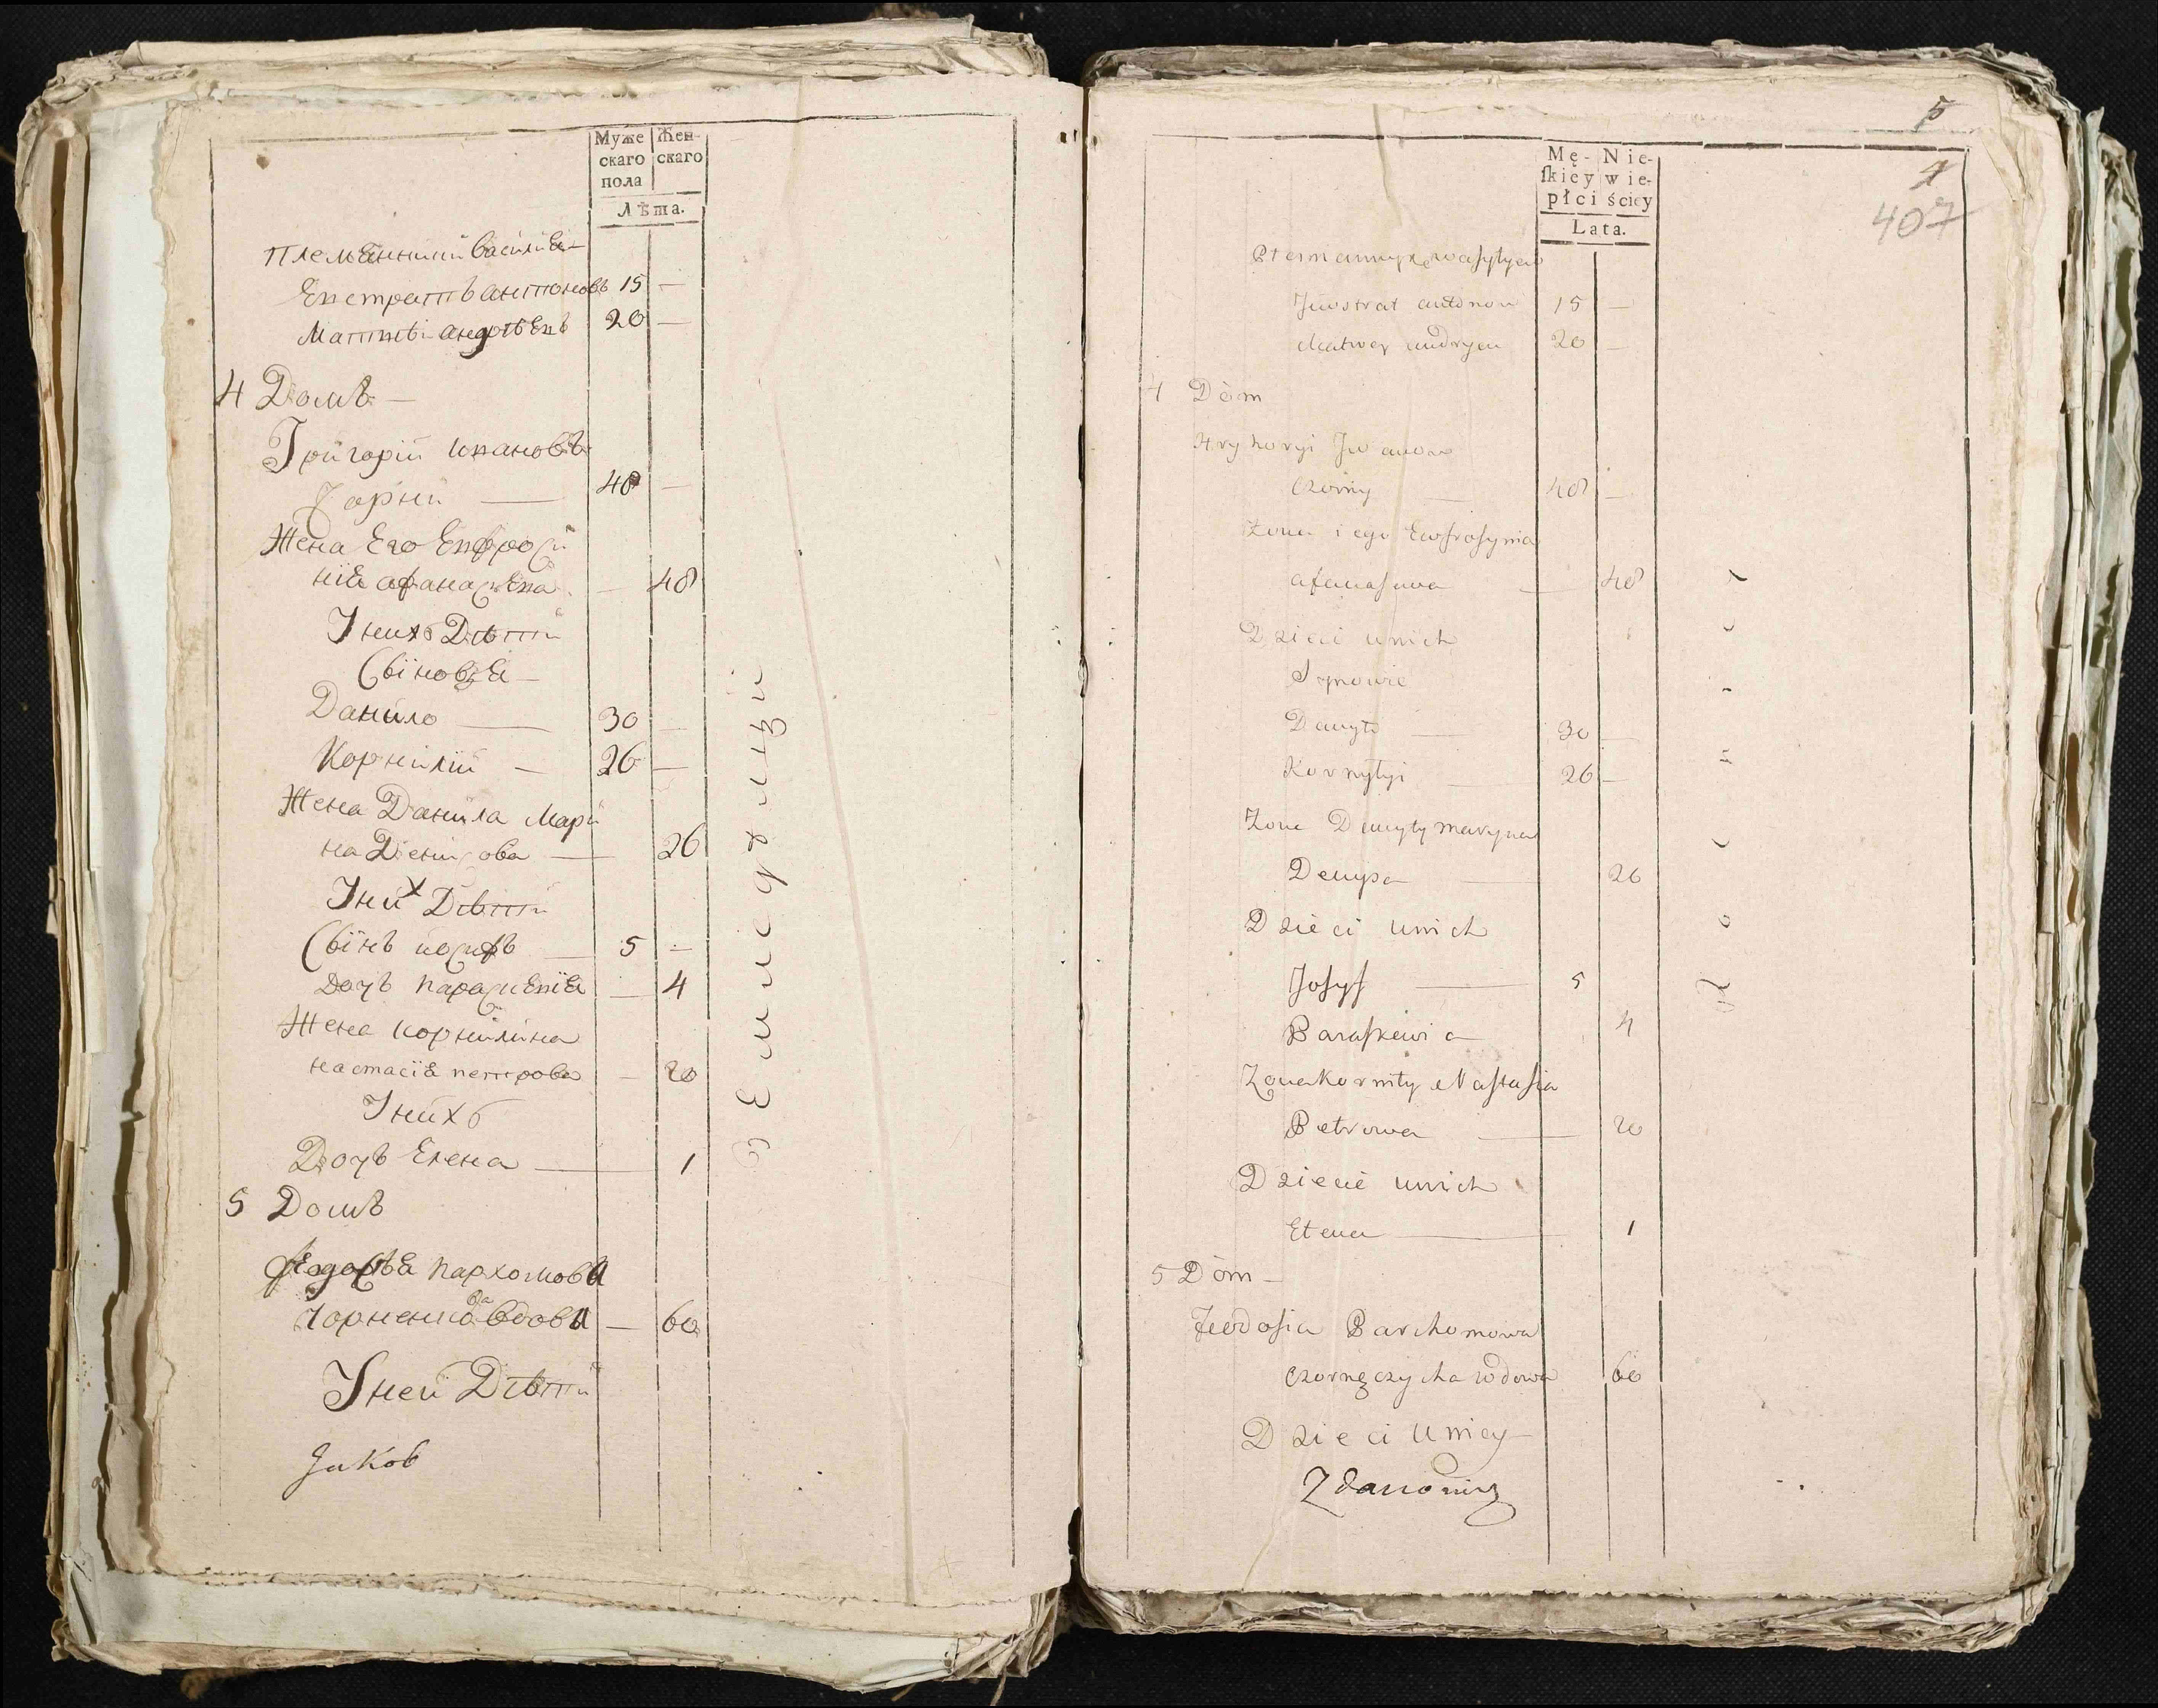 Муже Жен-
скаго скаго
пола
Лѣта.
Племѣнники Василиѣ
Евстратъ антоновъ 15 —
Маттвѣ андрѣевъ 20 —
4 Домъ —
Григорій ивановъ
Чорній — 48 —
Жена Его Евфроси
ніѣ афанасѣва — 48
У нихъ Дѣтѣй
Сыновѣ —
Данило — 30 —
Корнилій — 26 —
Жена Данила Мари
на Денисова — 26
У них Дѣтѣй
Сынъ иосифъ — 5 —
Дочъ парасѣвіѣ — 4
Жена корнилина
настасіѣ петрова — 20
У нихъ
Дочъ Елена — 1
5 Домъ
Федосѣѣ пархомова
Чорненкова вдова — 60
У ней Дѣтѣй
Яков
5
407
Mę- Nie-
ſkiey wie-
płci ściey
Lata.
Plemannyke wasylyew
Jewstrat antonow 15 —
Matwey andryeu 20 —
4 Dóm
Hryhoryi Jwanow
Czorny — 48 —
Żona iego Ewfrosynia
afanasiwa — 48
Dzieci unich
Synowie
Danyło — 30 —
Kornyłyi — 26 —
Żona Danyły maryna
Denysa — 26
Dzieci unich
Josyf — 5
Paraskewia 4
Żona Kornity Nastasia
Petrowa — 20
Dziecie unich
Elena — 1
5 Dóm —
Feodosia Parchomowa
Czornęczycha wdowa 60
Dzieci uniey
Zdanowicz